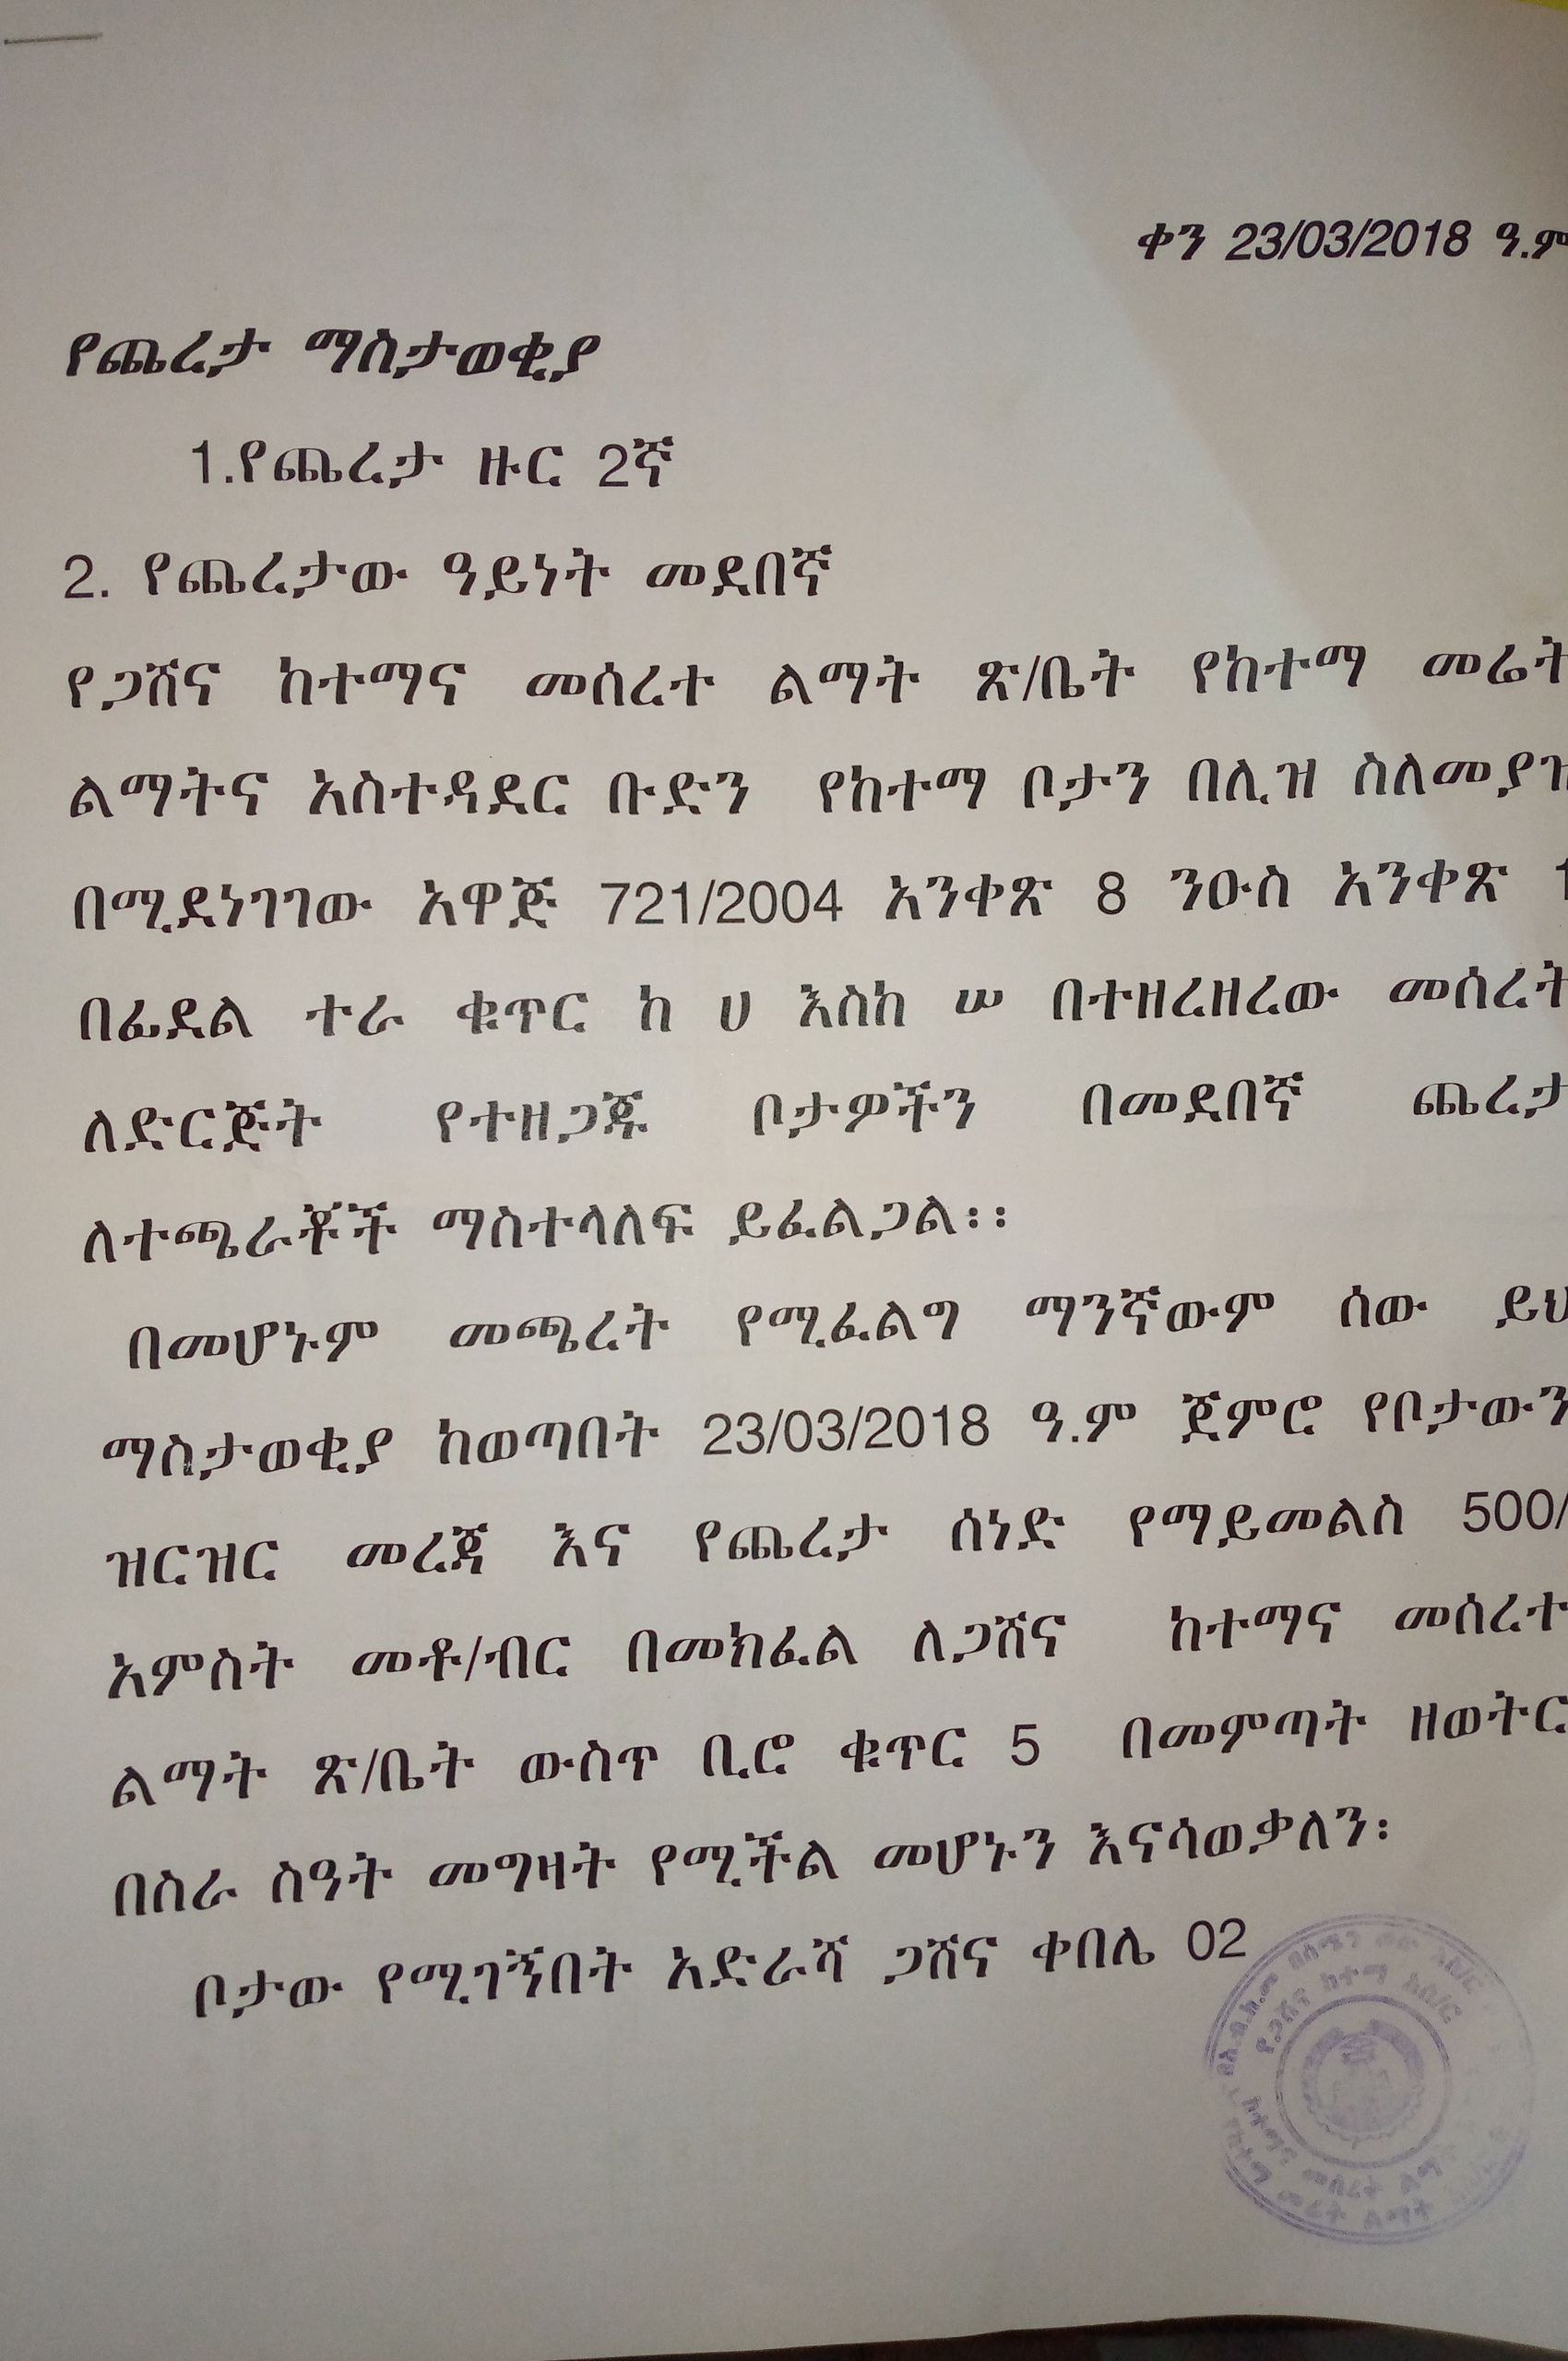 ቀን 23/03/2018 ዓ.ም
የጨረታ ማስታወቂያ
1.የጨረታ ዙር 2ኛ
2. የጨረታው ዓይነት መደበኛ
የጋሸና ከተማና መሰረተ ልማት ጽ/ቤት የከተማ መሬት
ልማትና አስተዳደር ቡድን የከተማ ቦታን በሊዝ ስለመያዝ
በሚደነገገው አዋጅ 721/2004 አንቀጽ 8 ንዑስ አንቀጽ 1
በፊደል ተራ ቁጥር ከ ሀ እስከ ሠ በተዘረዘረው መሰረት
ለድርጅት የተዘጋጁ ቦታዎችን በመደበኛ ጨረታ
ለተጫራቾች ማስተላለፍ ይፈልጋል፡፡
በመሆኑም መጫረት የሚፈልግ ማንኛውም ሰው ይህ
ማስታወቂያ ከወጣበት 23/03/2018 ዓ.ም ጀምሮ የቦታውን
ዝርዝር መረጃ እና የጨረታ ሰነድ የማይመልስ 500/
አምስት መቶ/ብር በመክፈል ለጋሸና ከተማና መሰረተ
ልማት ጽ/ቤት ውስጥ ቢሮ ቁጥር 5 በመምጣት ዘወትር
በስራ ስዓት መግዛት የሚችል መሆኑን እናሳወቃለን፡
ቦታው የሚገኝበት አድራሻ ጋሸና ቀበሌ 02
የጋሸና ከተማ አስ/ር